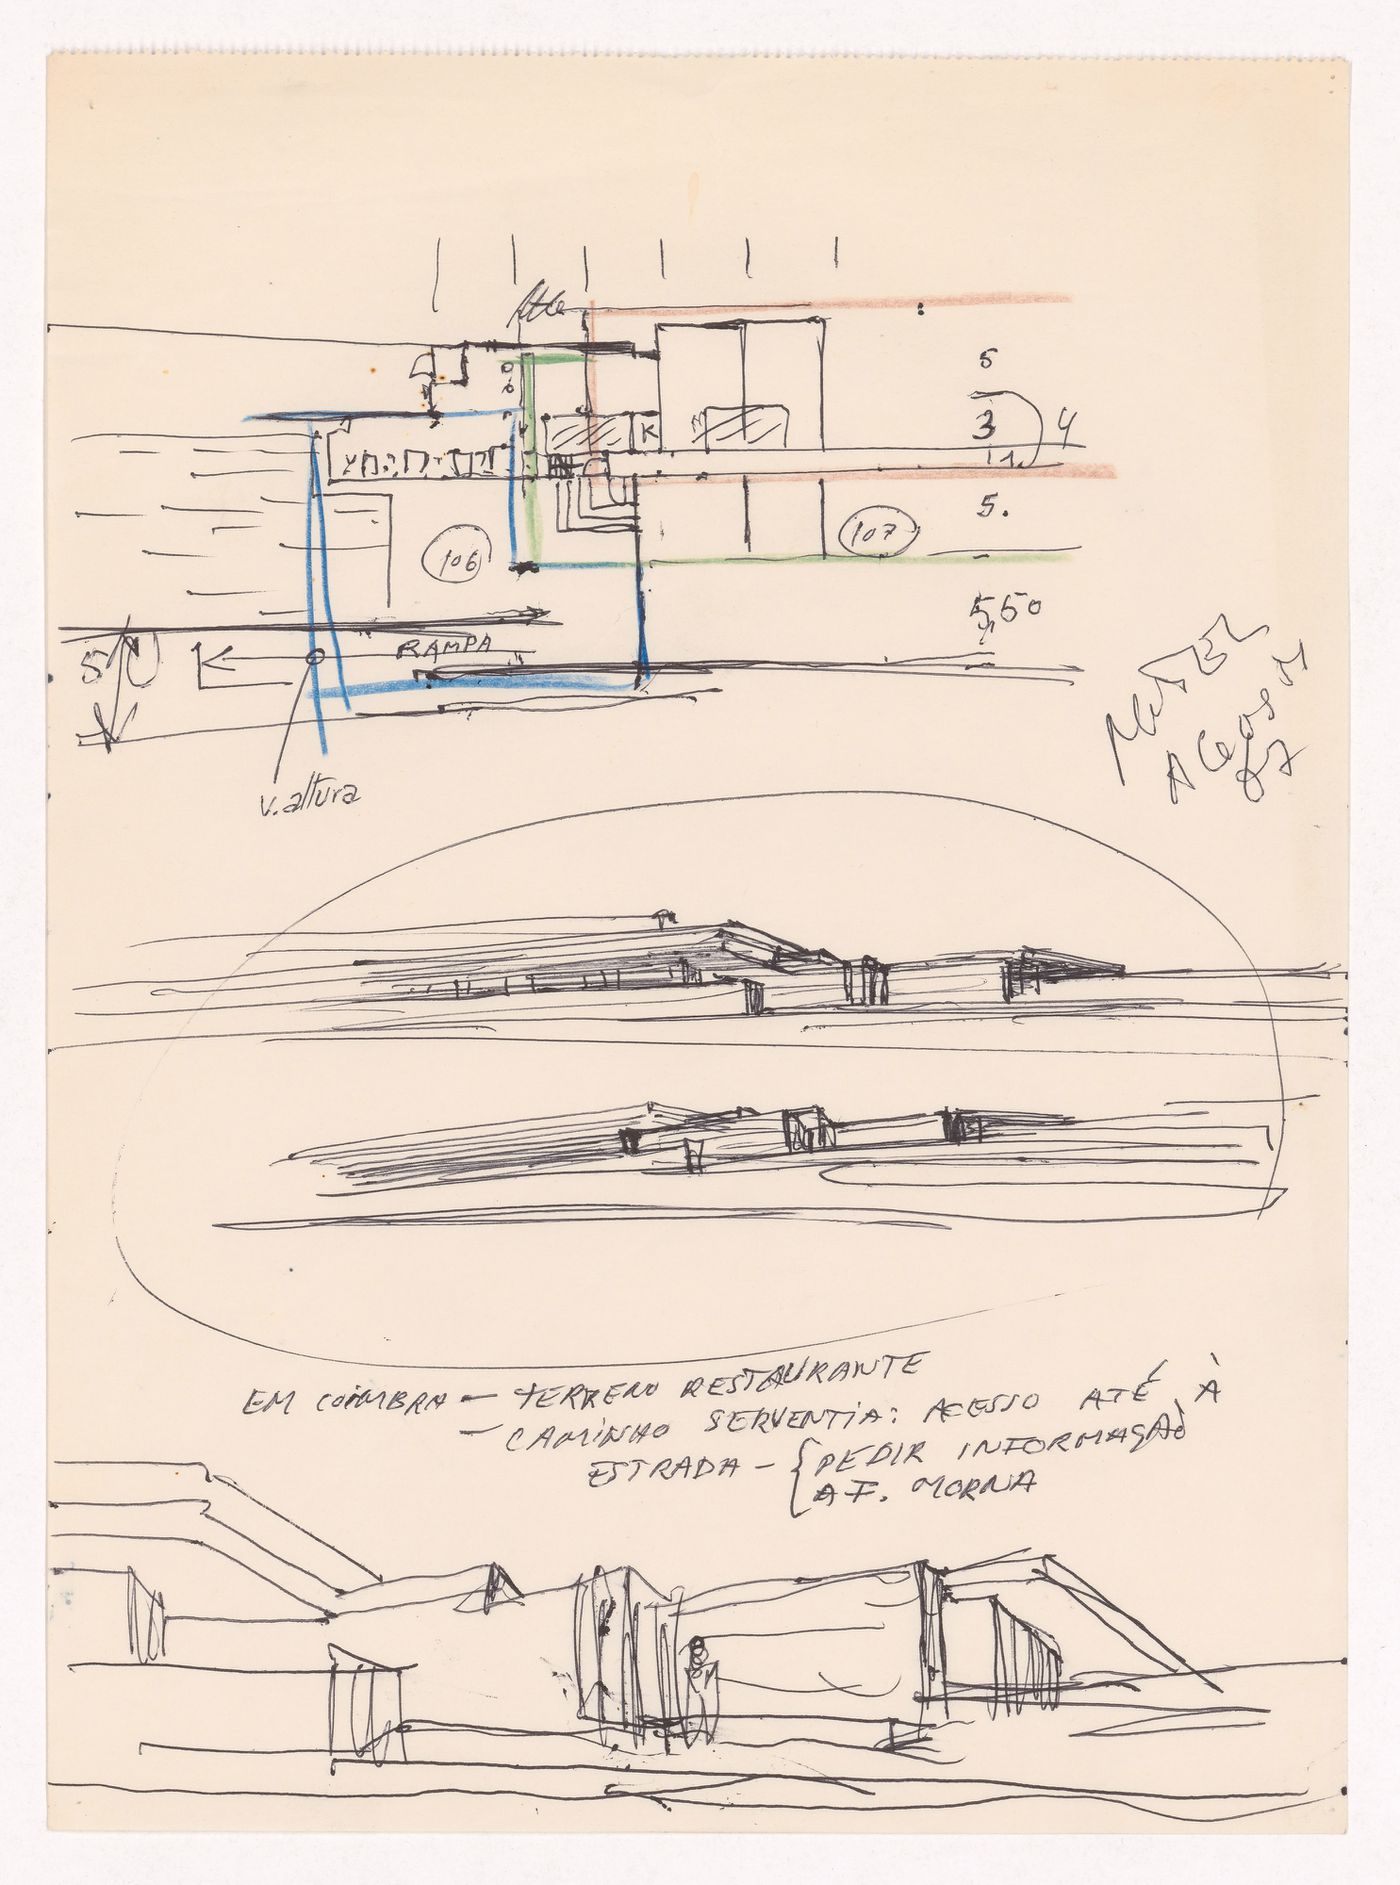 5
K
3
4
5.
107
106
5,50
RAMPA
5
v. altura
EM COIMBRA — TERRENO RESTAURANTE
— CAMINHO SERVENTIA: ACESSO ATÉ À
ESTRADA — { PEDIR INFORMAÇÃO
A F. MORNA